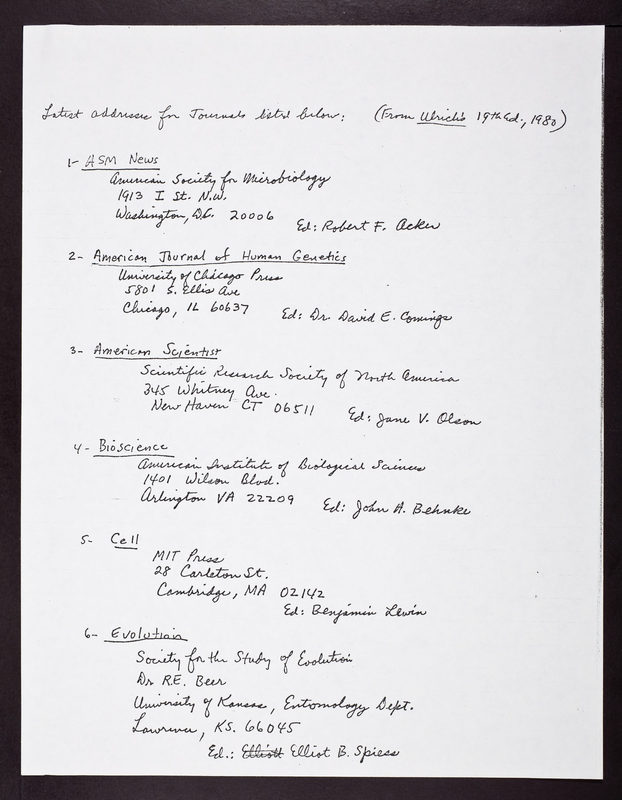 Latest addresses for Journals listed below: (From Ulrich's 19th Ed., 1980)
1- ASM News
American Society for Microbiology
1913 I St. N.W.
Washington, D.C. 20006
Ed: Robert F. Acker
2- American Journal of Human Genetics
University of Chicago Press
5801 S. Ellis Ave
Chicago, IL 60637
Ed: Dr. David E. Comings
3- American Scientist
Scientific Research Society of North America
345 Whitney Ave.
New Haven CT 06511
Ed: Jane V. Olson
4- Bioscience
American Institute of Biological Sciences
1401 Wilson Blvd.
Arlington VA 22209
Ed: John A. Behnke
5- Cell
MIT Press
28 Carleton St.
Cambridge, MA 02142
Ed: Benjamin Lewin
6- Evolution
Society for the Study of Evolution
Dr R.E. Beer
University of Kansas, Entomology Dept.
Lawrence, KS. 66045
Ed.: Elliott Elliot B. Spiess